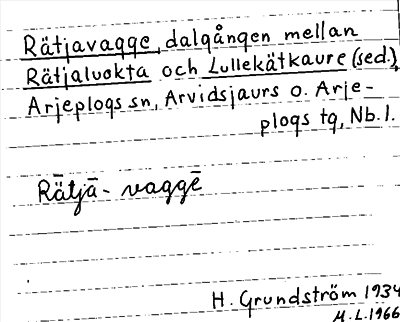 Rätjavagge, dalgången mellan
Rätjaluokta och Lullekätkaure (sed.),
Arjeplogs sn, Arvidsjaurs o. Arje-
plogs tg, Nb. l.
Rätjā- vaggē
H. Grundström 1934
M.L.1966